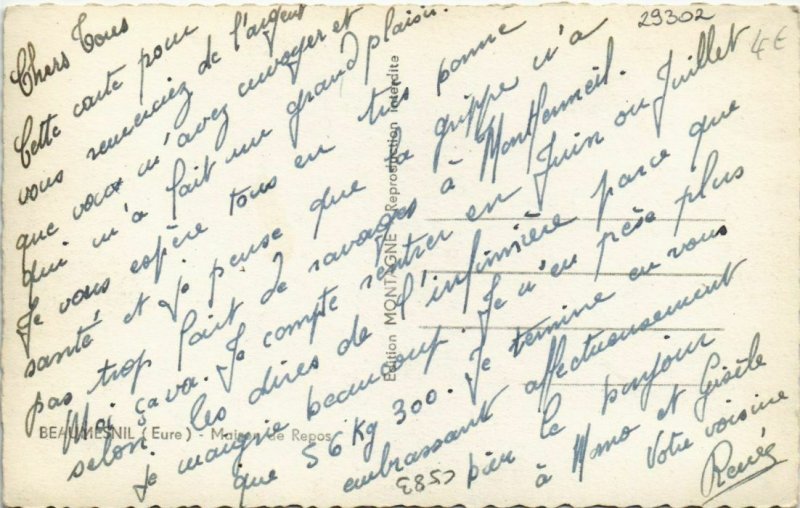 29302
4€
Chers Tous
Cette carte pour
vous remerciez de l'argent
que vous m'avez envoyer et
qui m'a fait un grand plaisir.
Je vous espère tous en très bonne
santé et je pense que la grippe n'a
pas trop fait de ravages à Montfermeil.
Moi ça va. Je compte rentrer en Juin ou Juillet
selon les dires de l'infirmière parce que
je maigrie beaucoup. Je n'en pèse plus
que 56 Kg 300. Je termine en vous
embrassant affectueusement
bien le bonjour
à Mmo et Gisèle
Votre voisine
Renée
Edition MONTAGNE - Reproduction interdite
BEAUMESNIL (Eure) - Maison de Repos